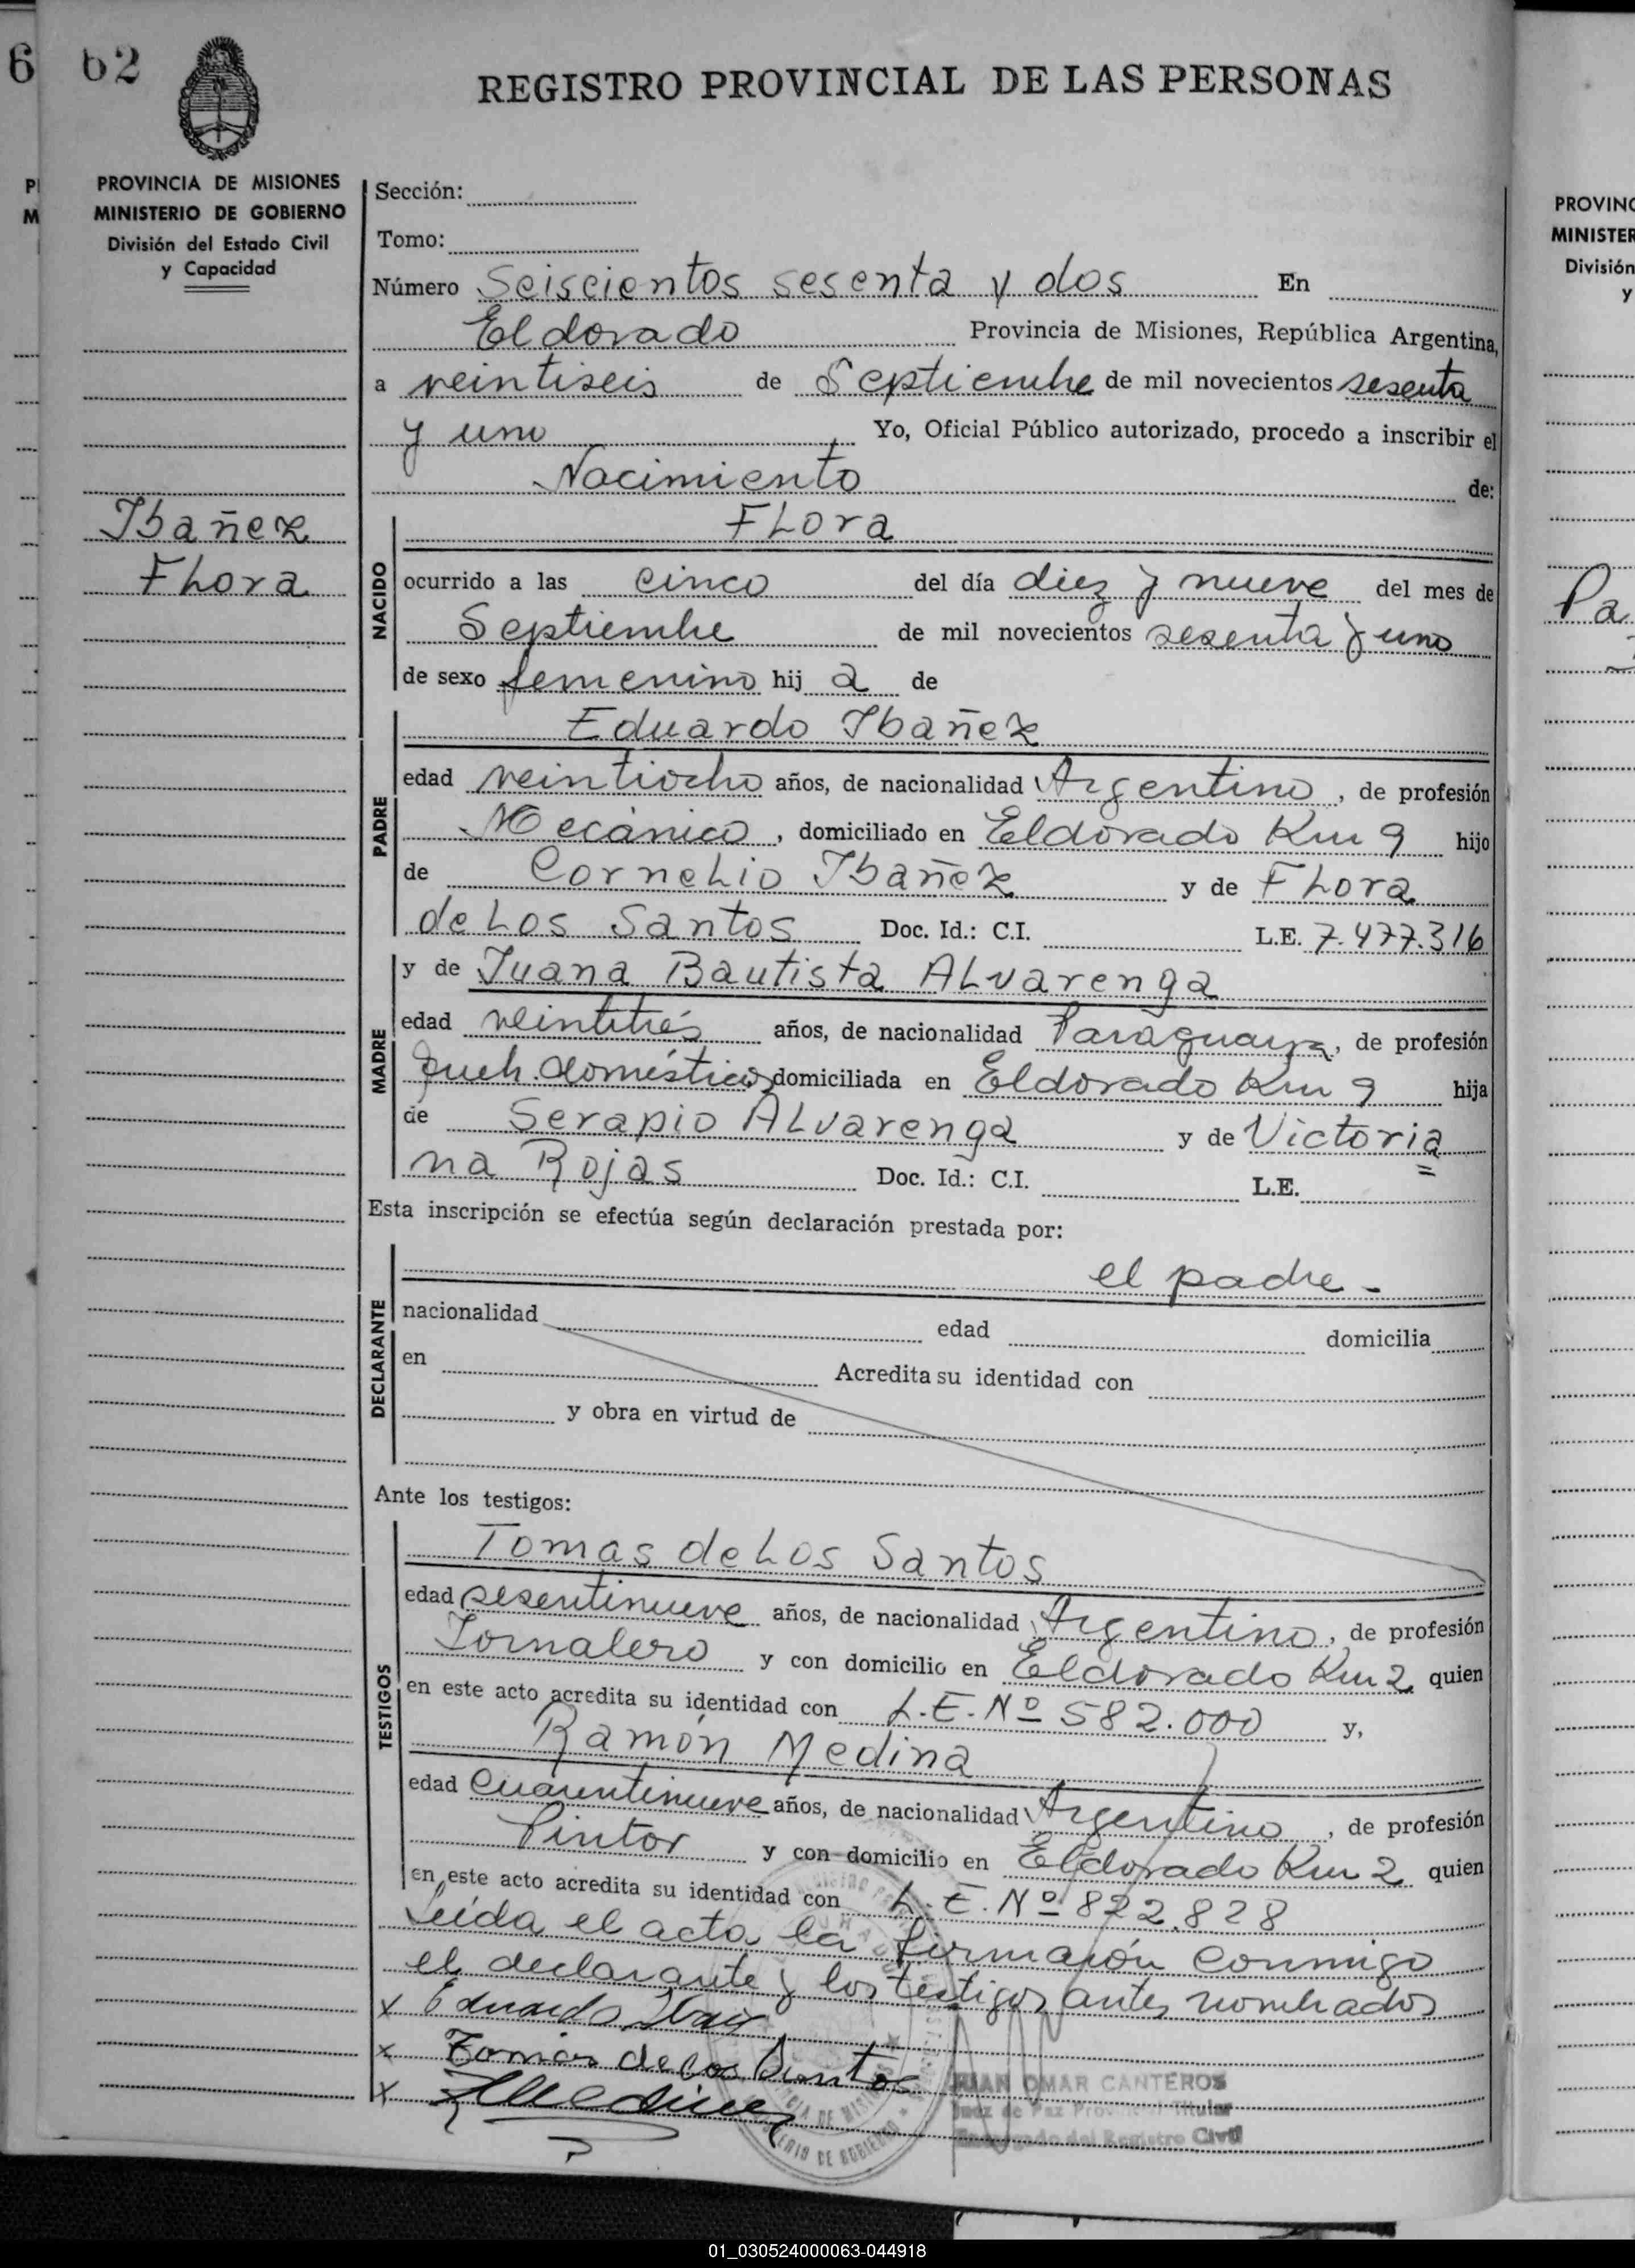 6 62
REGISTRO PROVINCIAL DE LAS PERSONAS
PROVINCIA DE MISIONES
MINISTERIO DE GOBIERNO
División del Estado Civil
y Capacidad
Ibañez
Flora
Sección:
Tomo:
Número Seiscientos sesenta y dos En
Eldorado Provincia de Misiones, República Argentina,
a veintiseis de Septiembre de mil novecientos sesenta
y uno Yo, Oficial Público autorizado, procedo a inscribir el
Nacimiento de:
NACIDO
Flora
ocurrido a las cinco del día diez y nueve del mes de
Septiembre de mil novecientos sesenta y uno
de sexo femenino hij a de
PADRE
Eduardo Ibañez
edad veintiocho años, de nacionalidad Argentino, de profesión
Mecánico, domiciliado en Eldorado Km 9 hijo
de Cornelio Ibañez y de Flora
de Los Santos Doc. Id.: C.I. L.E. 7.477.316
MADRE
y de Juana Bautista Alvarenga
edad veintitrés años, de nacionalidad Paraguaya, de profesión
queh. domésticos domiciliada en Eldorado Km 9 hija
de Serapio Alvarenga y de Victoria
na Rojas Doc. Id.: C.I. L.E.
Esta inscripción se efectúa según declaración prestada por:
DECLARANTE
el padre -
nacionalidad edad domicilia
en Acredita su identidad con
y obra en virtud de
Ante los testigos:
TESTIGOS
Tomas de Los Santos
edad sesentinueve años, de nacionalidad Argentino, de profesión
Jornalero y con domicilio en Eldorado Km 2 quien
en este acto acredita su identidad con L.E. Nº 582.000 y,
Ramón Medina
edad cuarentinueve años, de nacionalidad Argentino, de profesión
Pintor y con domicilio en Eldorado Km 2 quien
en este acto acredita su identidad con L.E. Nº 822.828
Leída el acta la firmaron conmigo
el declarante y los testigos antes nombrados
x Eduardo Ibañez
x Tomas de los Santos
x RMedina
JUAN OMAR CANTEROS
Juez de Paz Provincial Titular
Encargado del Registro Civil
PROVINC
MINISTER
División
y
Pa
01_030524000063-044918